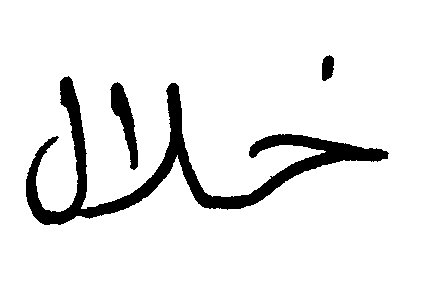 خلال